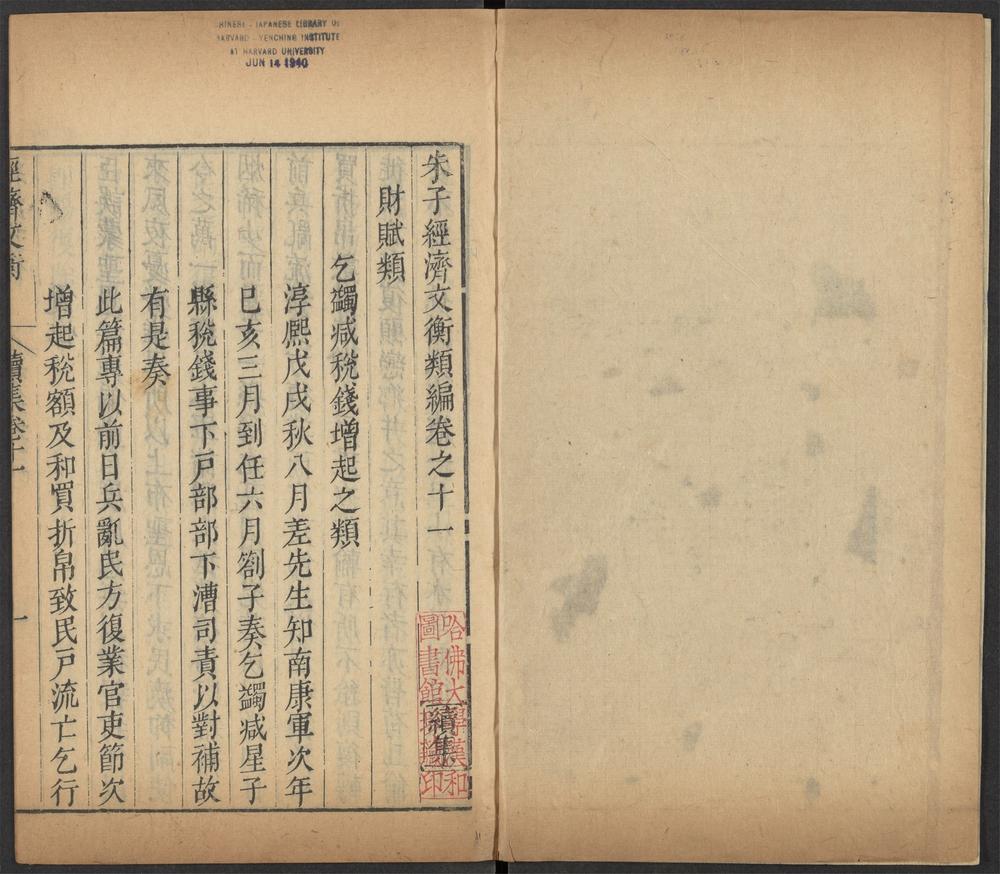 CHINESE - JAPANESE LIBRARY OF
HARVARD - YENCHING INSTITUTE
AT HARVARD UNIVERSITY
JUN 14 1940
朱子經濟文衡類編卷之十一
續集
哈佛大學漢和
圖書館珍藏印
財賦類
乞蠲减稅錢增起之類
淳熈戊戌秋八月差先生知南康軍次年
巳亥三月到任六月劄子奏乞蠲减星子
縣稅錢事下戶部部下漕司責以對補故
有是奏
此篇專以前日兵亂民方復業官吏節次
增起稅額及和買折帛致民戶流亡乞行
經濟文衡
續集卷十一
一